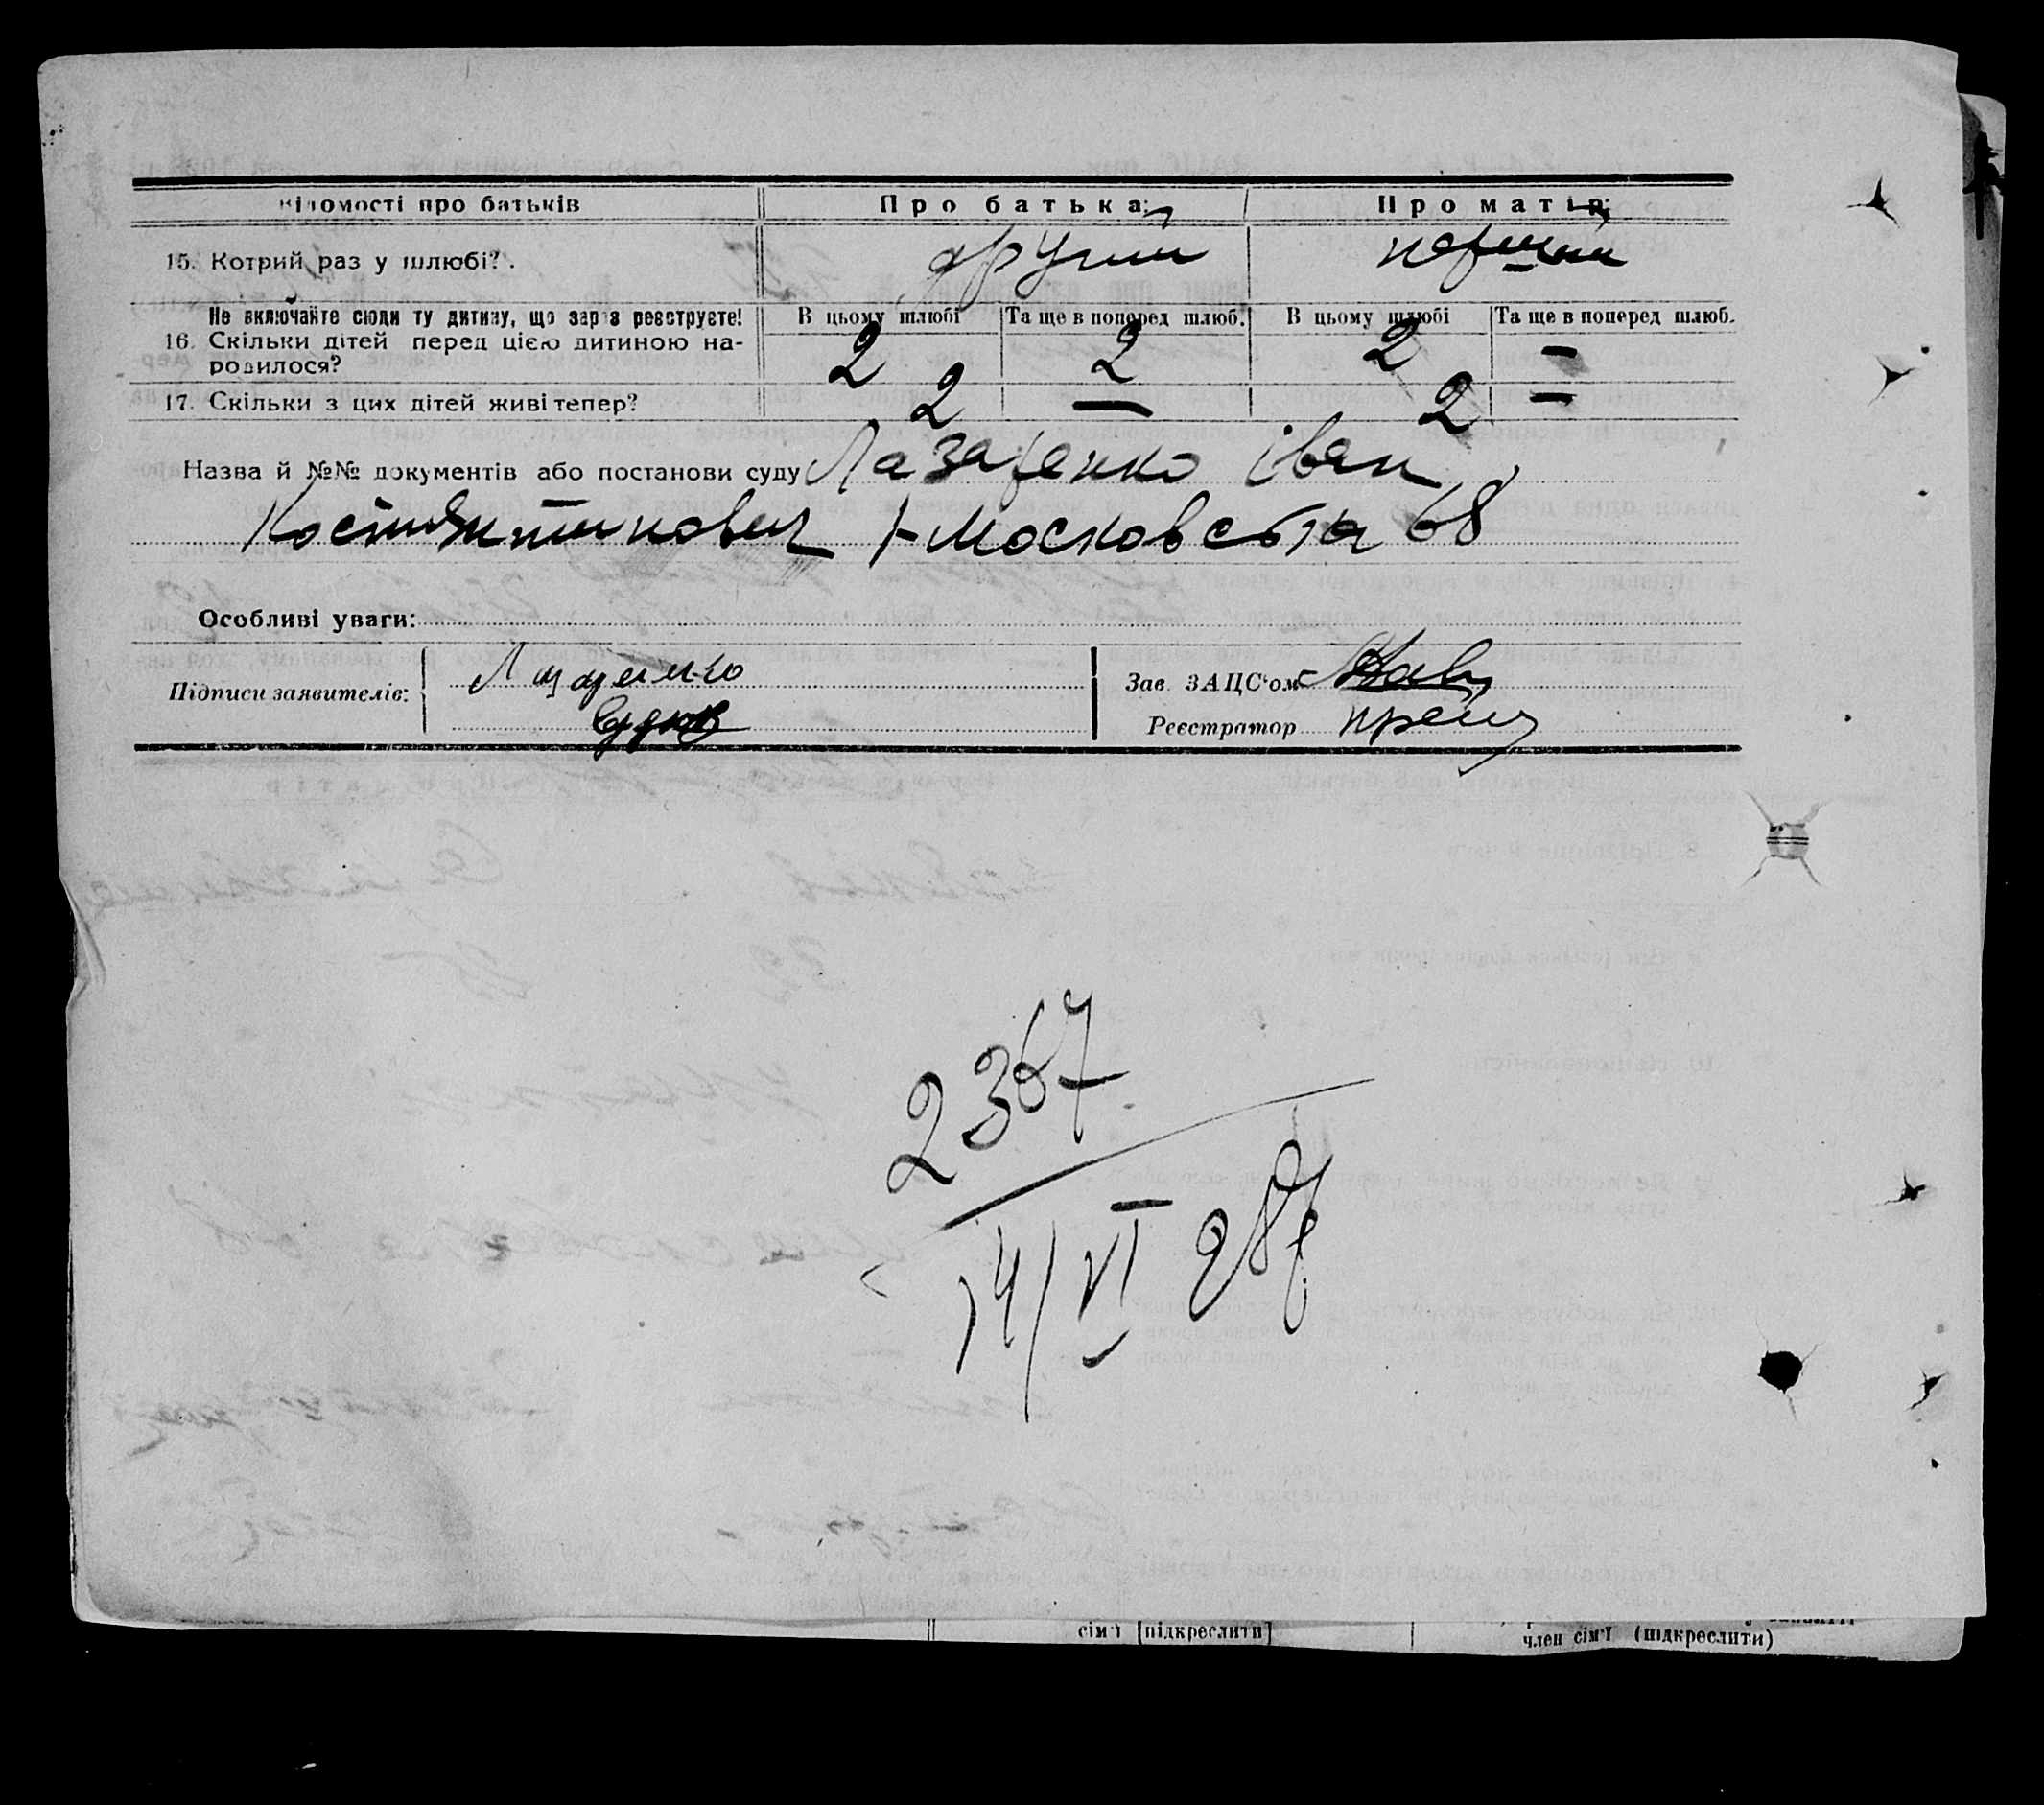 Відомості про батьків Про батька: Про матір:
15. Котрий раз у шлюбі?. другий перший
Не включайте сюди ту дитину, що зараз реєструєте! В цьому шлюбі Та ще в поперед шлюб. В цьому шлюбі Та ще в поперед шлюб.
16. Скільки дітей перед цією дитиною на-
родилося? 2 2 2 –
17. Скільки з цих дітей живі тепер? 2 — 2 –
Назва й №№ документів або постанови суду Лазаренко Іван
Костянтинович 1-Московська 68
Особливі уваги:
Підписи заявителів: Лазаренко Зав. ЗАЦС'ом
Реєстратор
2367
14/VI 28
сім'ї [підкреслити] член сім'ї (підкреслити)